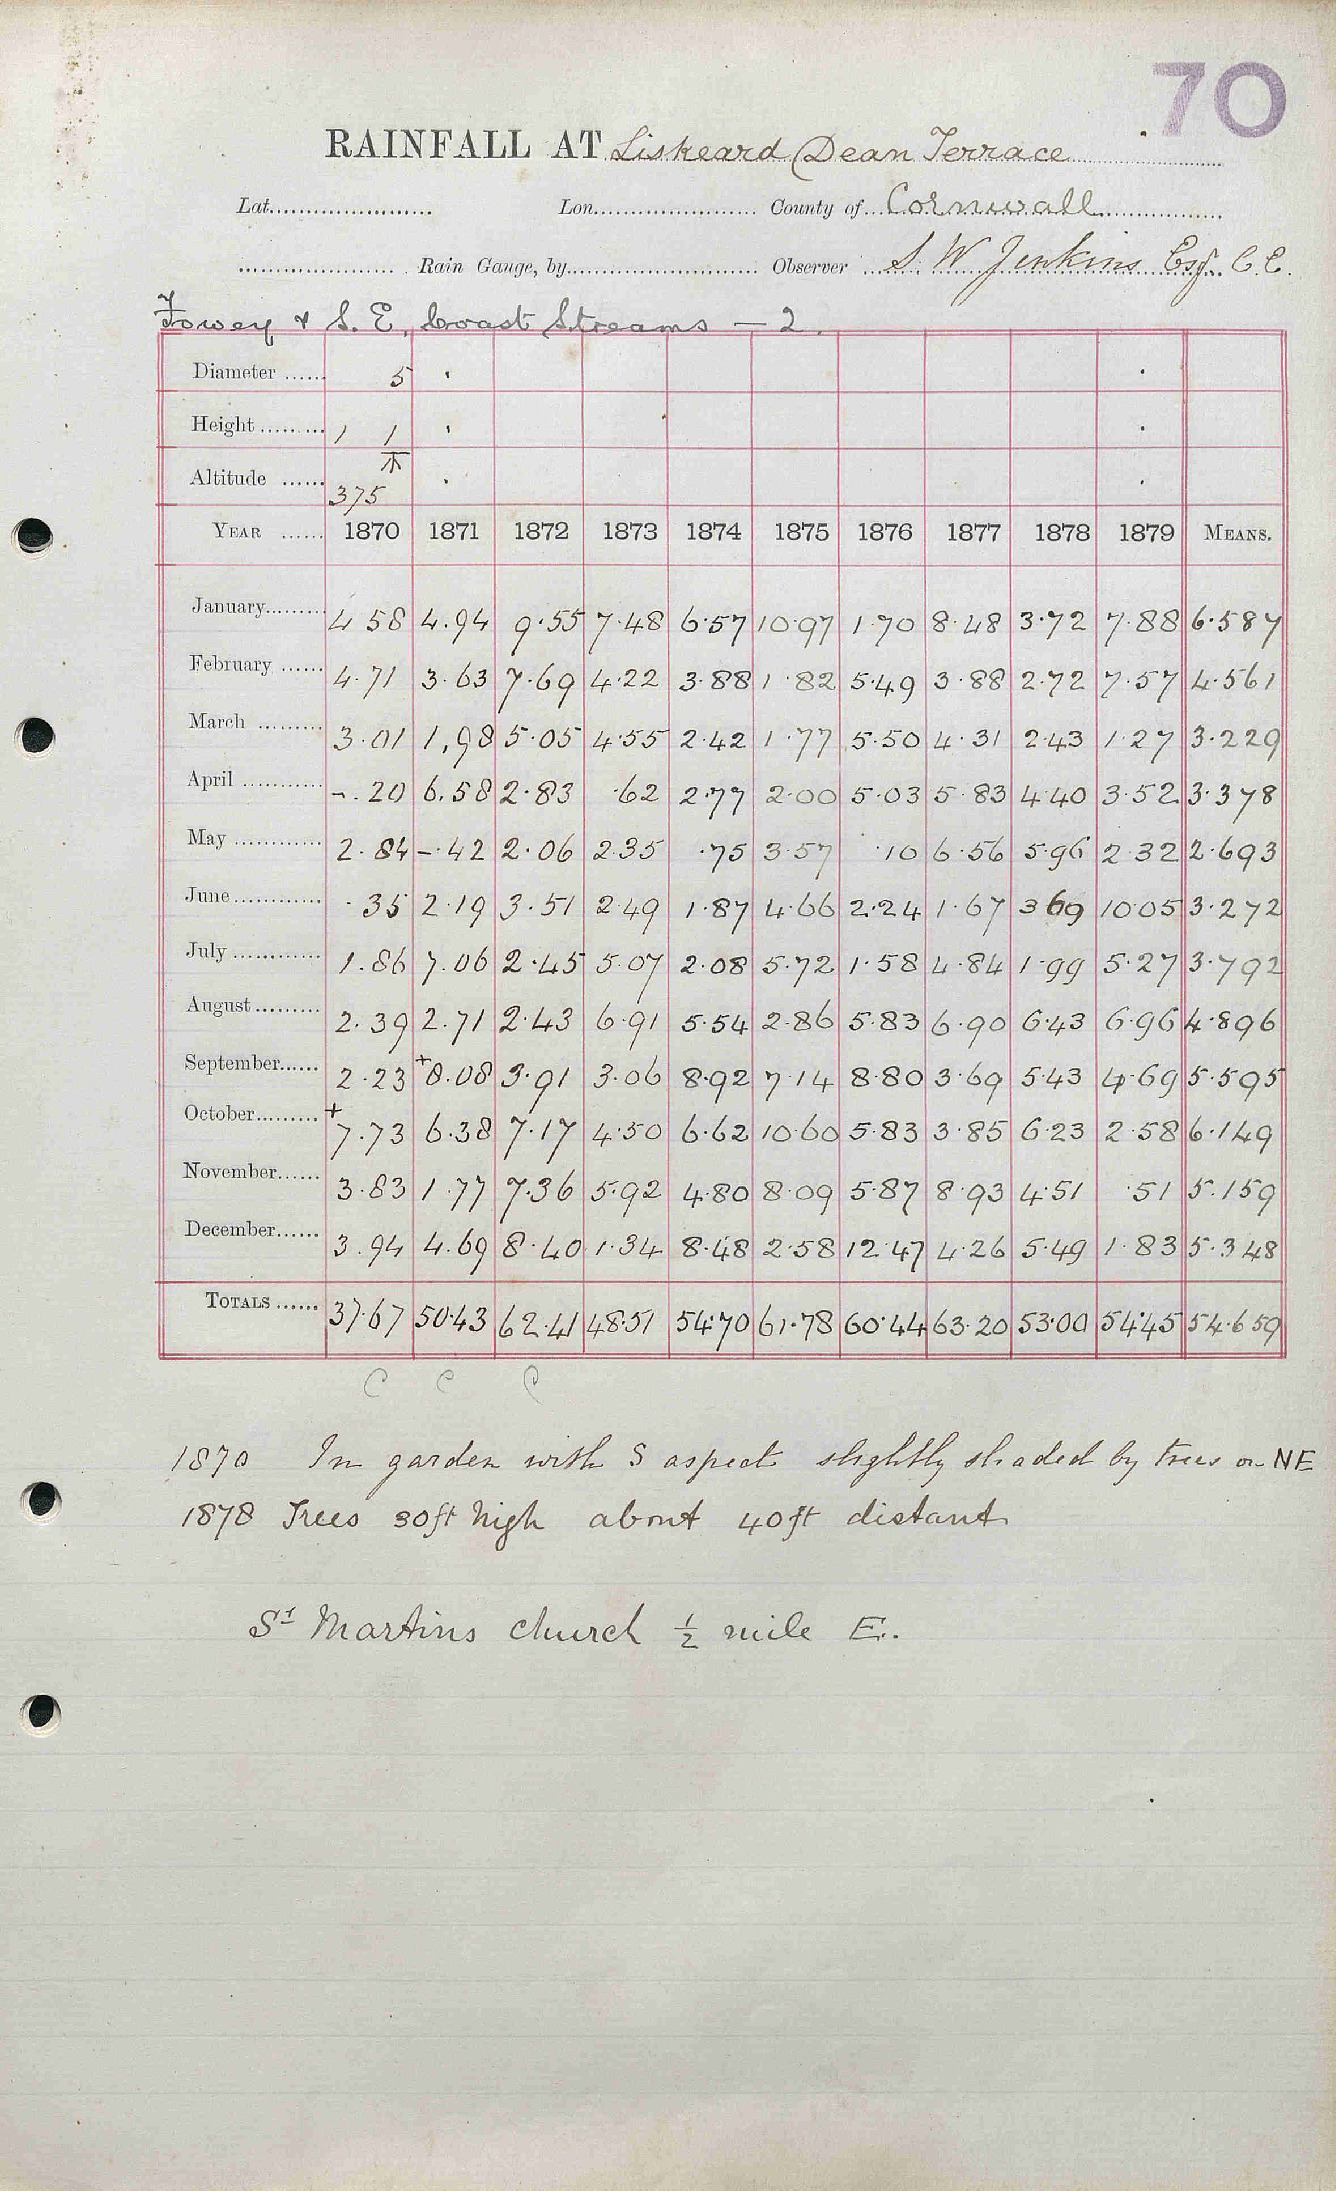 70
RAINFALL AT Liskeard (Dean Terrace
Lat. Lon. County of Cornwall
Rain Gauge, by Observer S. W Jenkins Esq. C.E.
Fowey & S. E, Coast Streams — 2.
Diameter 5
Height 1 1
Altitude 375
YEAR 1870 1871 1872 1873 1874 1875 1876 1877 1878 1879 MEANS.
January 4 58 4.94 9.55 7.48 6.57 10.97 1.70 8.48 3.72 7.88 6.587
February 4.71 3.63 7.69 4.22 3.88 1.82 5.49 3.88 2.72 7.57 4.561
March 3.01 1,98 5.05 4.55 2.42 1.77 5.50 4.31 2.43 1.27 3.229
April -.20 6.58 2.83 .62 2.77 2.00 5.03 5.83 4.40 3.52 3.378
May 2.84 -.42 2.06 2.35 .75 3.57 .10 6.56 5.96 2.32 2.693
June .35 2.19 3.51 2.49 1.87 4.66 2.24 1.67 3 69 10.05 3.272
July 1.86 7.06 2.45 5.07 2.08 5.72 1.58 4.84 1.99 5.27 3.792
August 2.39 2.71 2.43 6.91 5.54 2.86 5.83 6.90 6.43 6.96 4.896
September 2.23 +8.08 3.91 3.06 8.92 7.14 8.80 3.69 5.43 4.69 5.595
October +7.73 6.38 7.17 4.50 6.62 10.60 5.83 3.85 6.23 2.58 6.149
November 3.83 1.77 7.36 5.92 4.80 8.09 5.87 8.93 4.51 .51 5.159
December 3.94 4.69 8.40 1.34 8.48 2.58 12.47 4.26 5.49 1.83 5.348
TOTALS 37.67 50.43 62.41 48.51 54.70 61.78 60.44 63.20 53.00 54.45 54.659
C C C
1870 In garden with S aspect slightly shaded by trees on NE
1878 Trees 30ft high about 40ft distant
St Martins church ½ mile E.